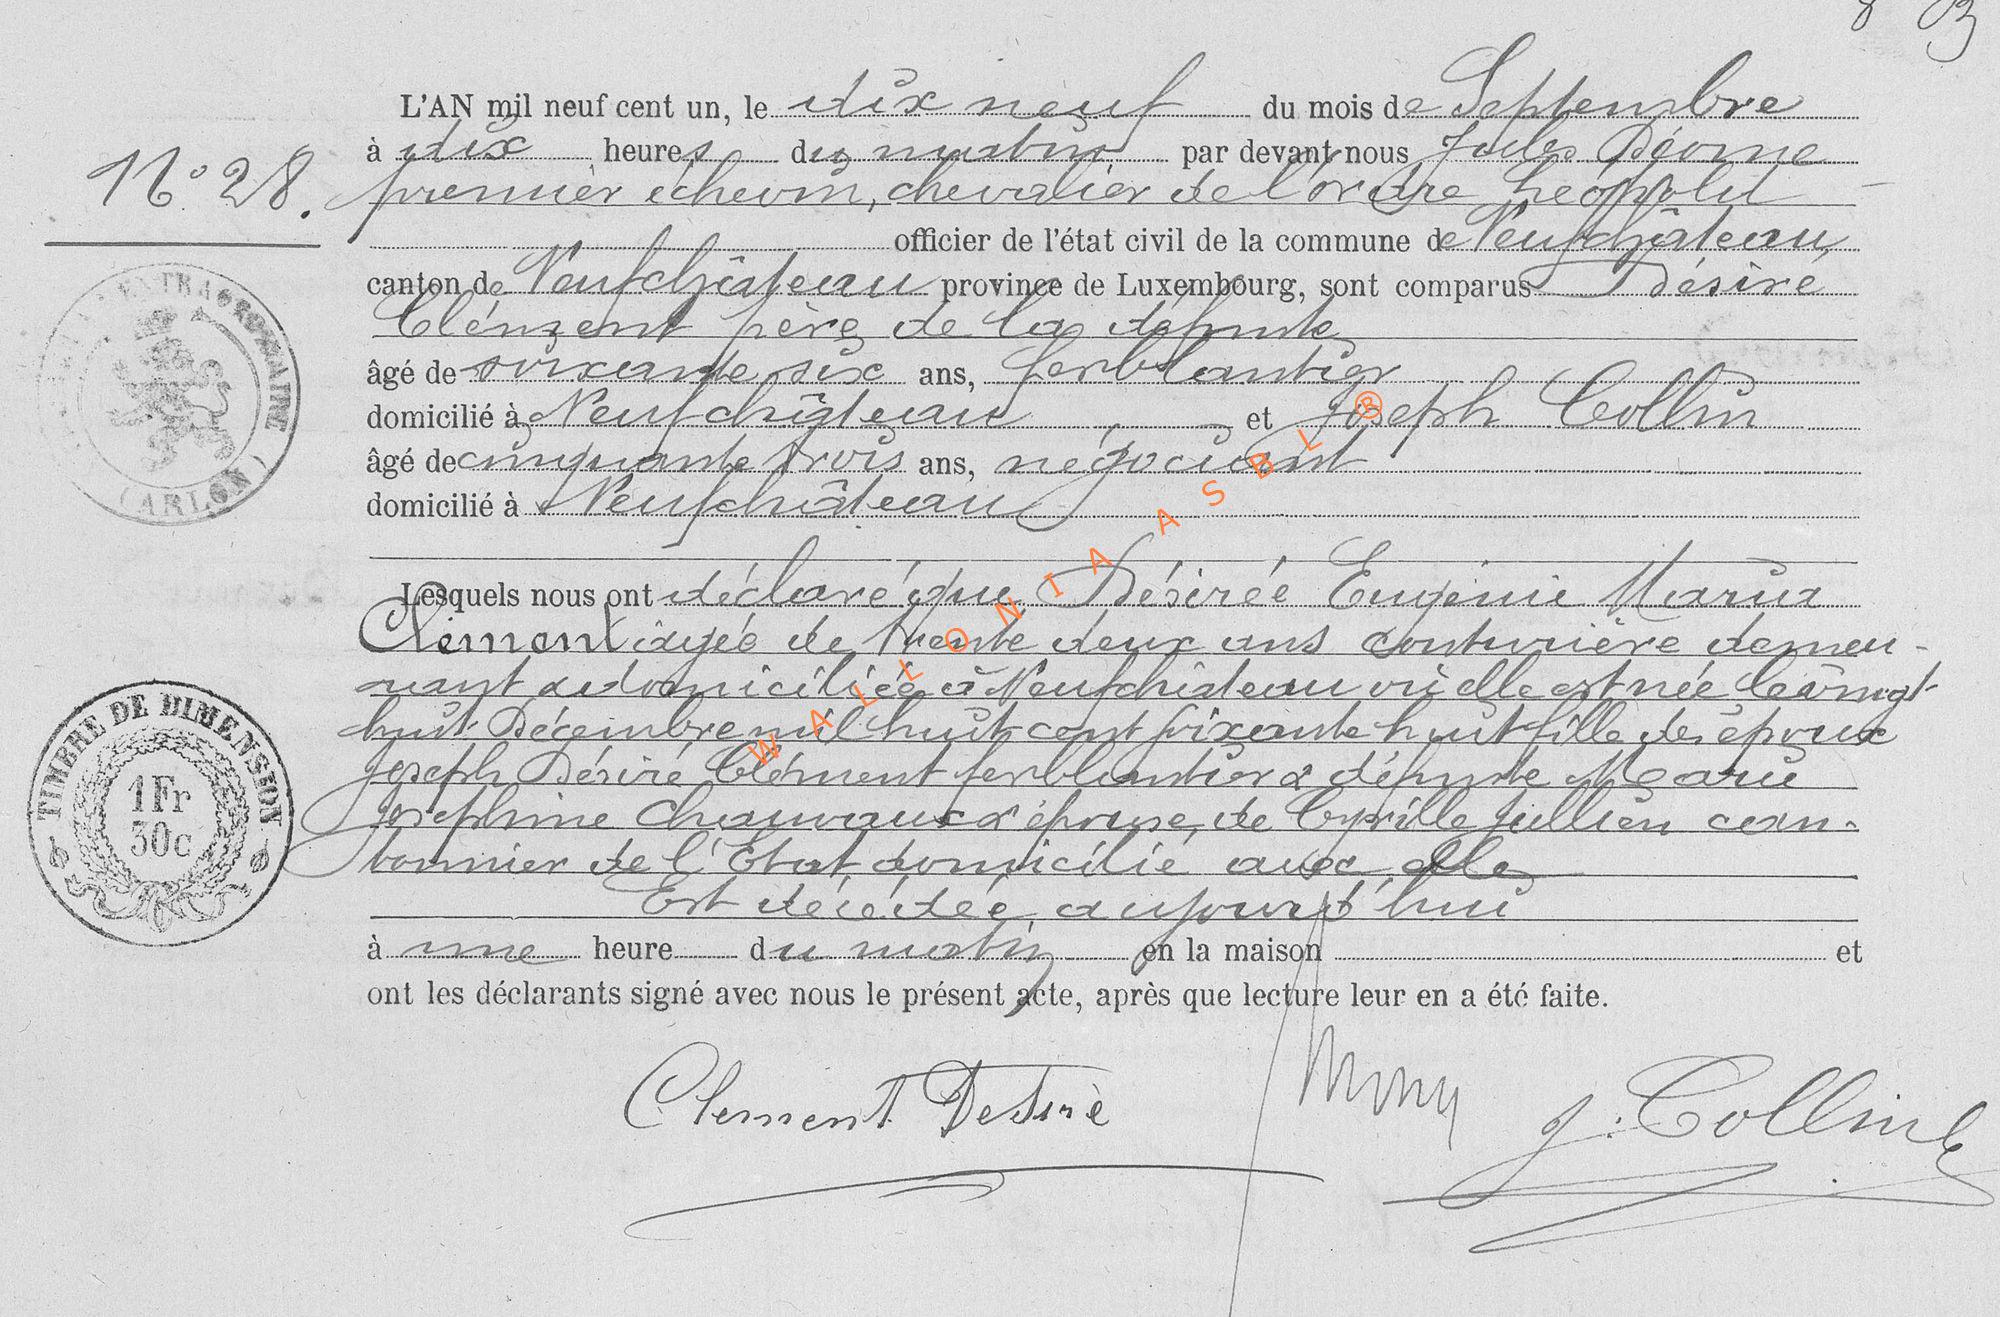 8 3
L'AN mil neuf cent un, le dix neuf du mois de Septembre
à dix heures du matin par devant nous Jules
N° 28. premier échevin, chevalier de l'ordre Léopold
officier de l'état civil de la commune de Neufchâteau
canton de Neufchâteau province de Luxembourg, sont comparus Désiré
Clément père de la défunte
âgé de soixante six ans, ferblantier
domicilié à Neufchâteau et Joseph Collin
âgé de cinquante trois ans, négociant
domicilié à Neufchâteau
Lesquels nous ont déclaré que Désirée Eugénie Maria
Clément âgée de trente deux ans couturière demeu-
rant & domiciliée à Neufchâteau où elle est née le vingt
huit Décembre mil huit cent soixante huit fille des époux
Joseph Désiré Clément ferblantier & défunte Marie
Josephine Chauvaux & épouse de Cyrille Jullien can-
tonnier de l'Etat domicilié avec elle
Est décédée aujourd'hui
à une heure du matin en la maison et
ont les déclarants signé avec nous le présent acte, après que lecture leur en a été faite.
Clement Desire
J. Collin
EXTRAORDINAIRE
(ARLON)
TIMBRE DE DIMENSION
1Fr
30c
WALLONIA ASBL ®